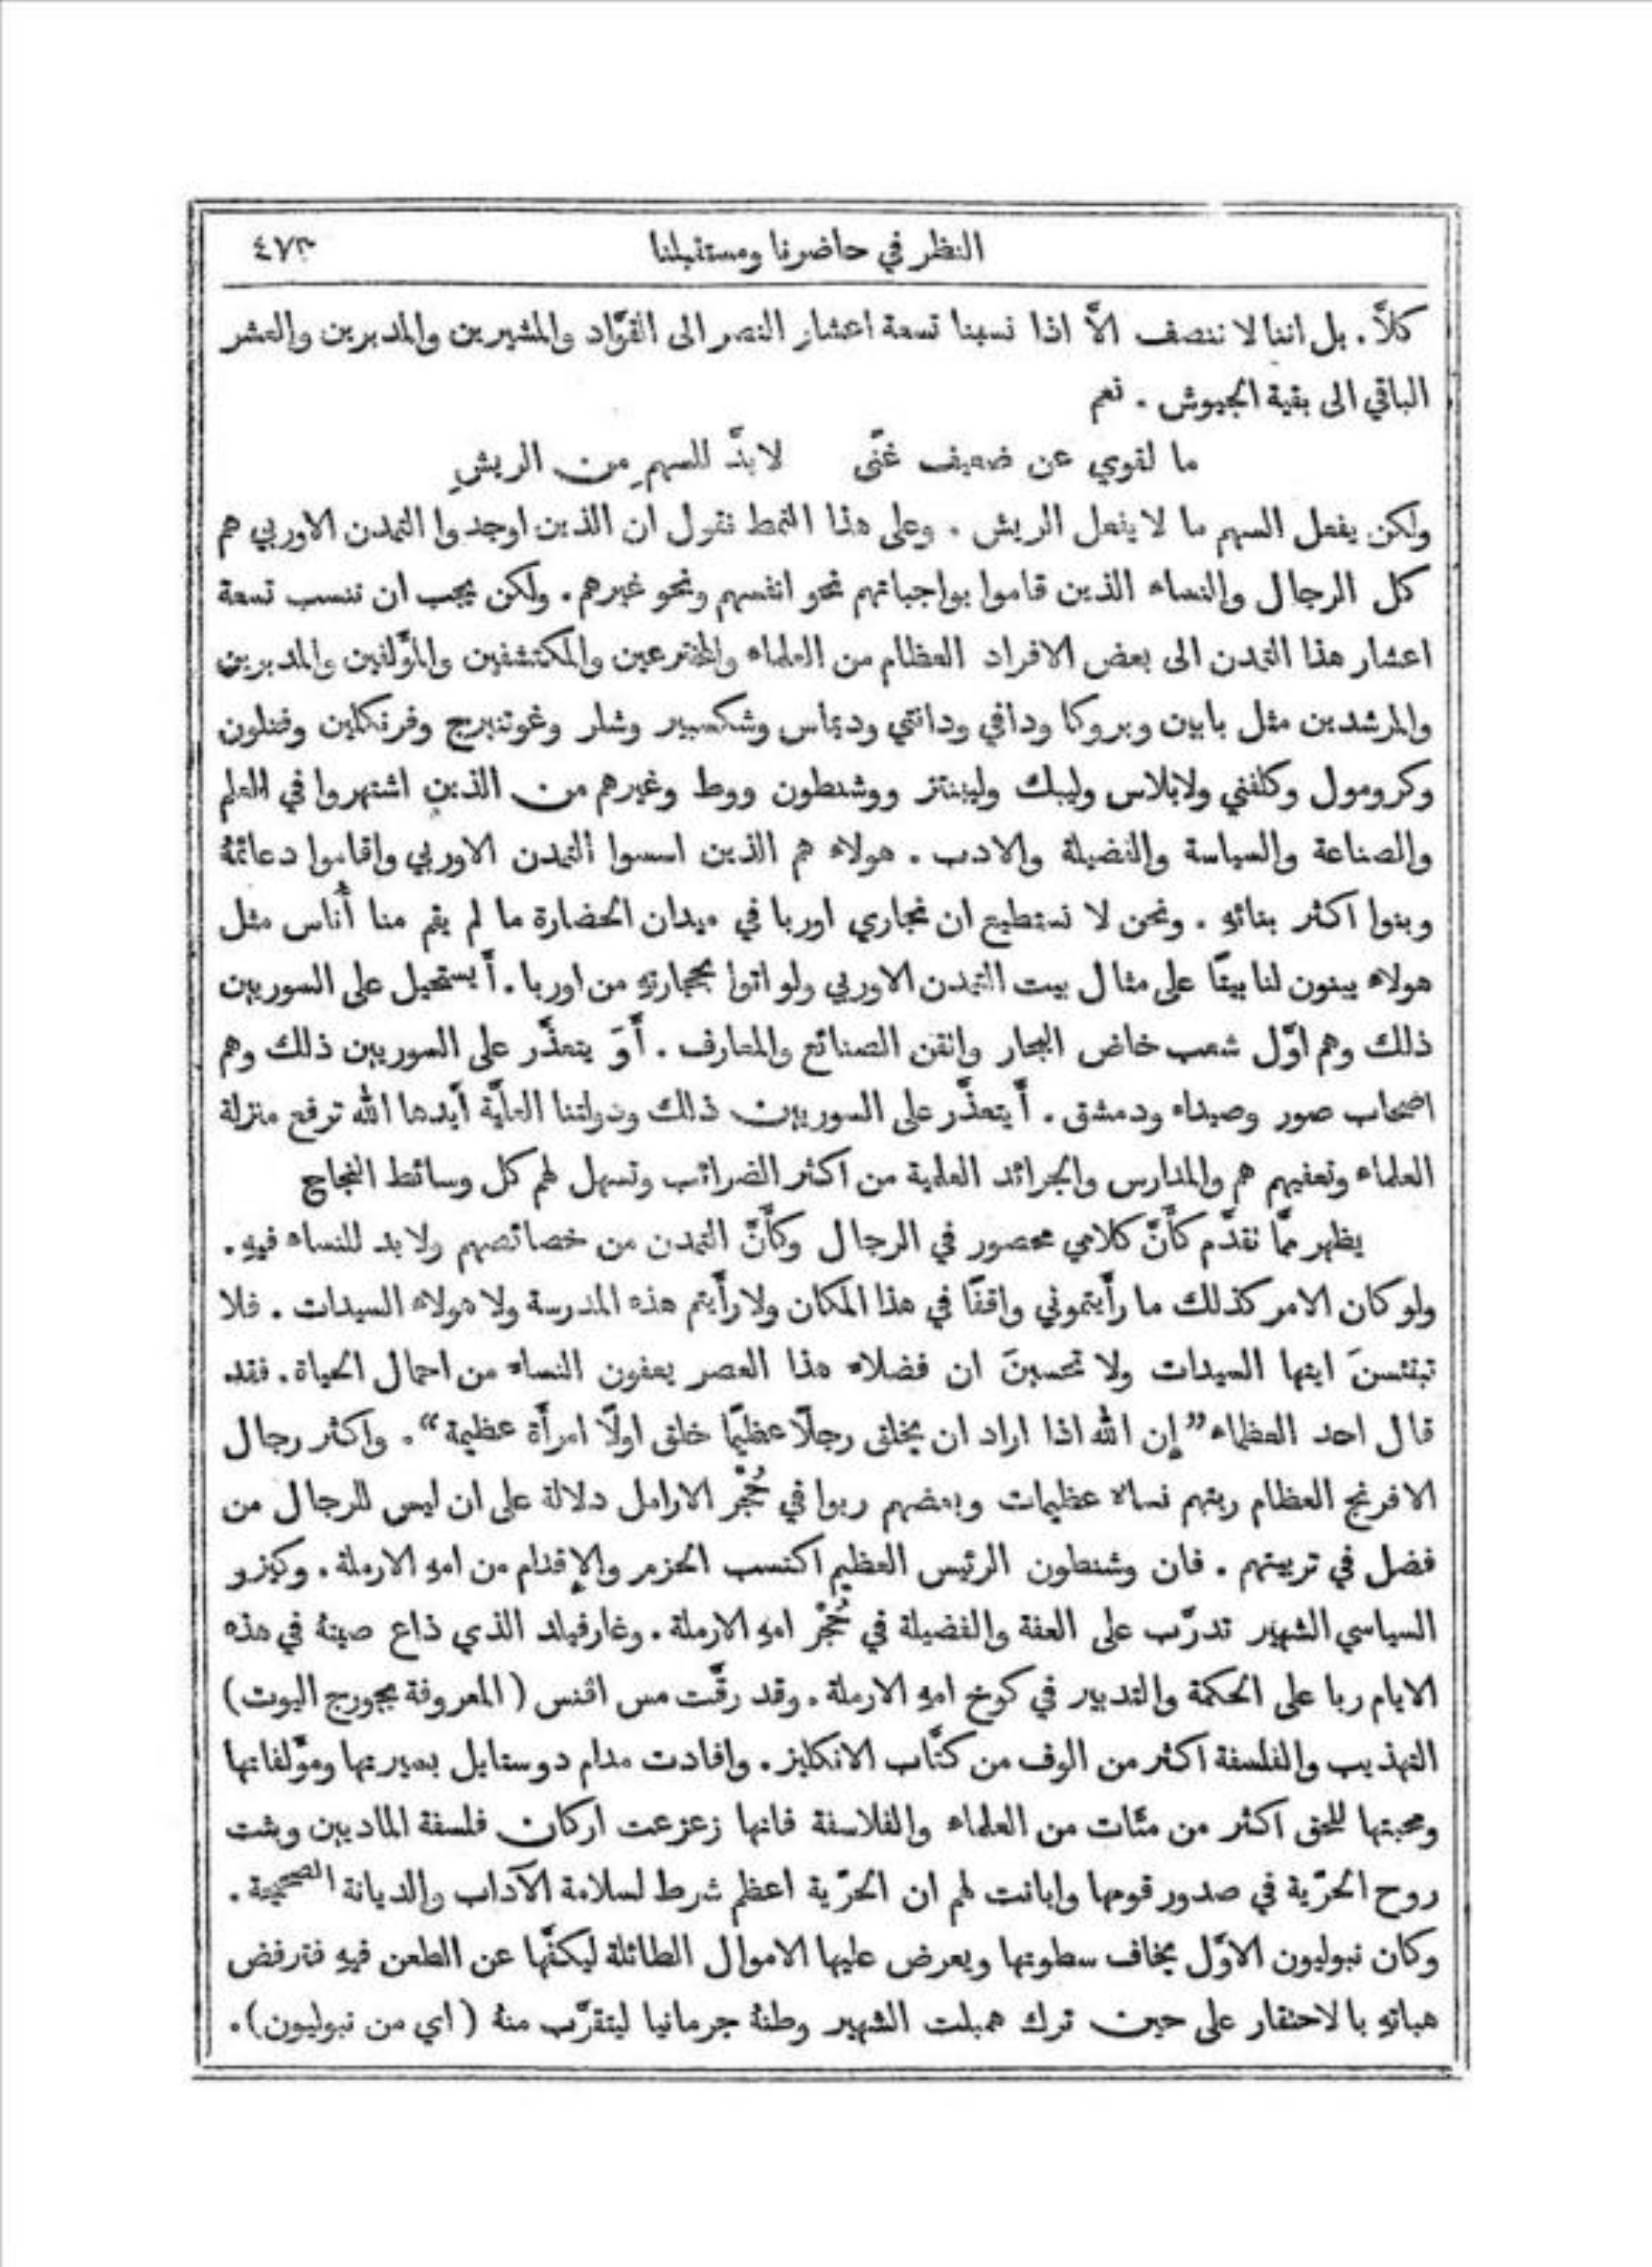 النظر في حاضرنا ومستقبلنا ٤٧٣
كلاَّ. بل اننا لا ننصف الاَّ اذا نسبنا تسعة اعشار النصر الى القوَّاد والمشيرين والمدبرين والعشر
الباقي الى بقية الجيوش. نعم
ما لقوي عن ضعيف غنًى لا بدَّ للسهمِ من الريشِ
ولكن يفعل السهم ما لا يفعل الريش. وعلى هذا النمط نقول ان الذين اوجدوا التمدن الاوربي هم
كل الرجال والنساء الذين قاموا بواجباتهم نحو انفسهم ونحو غيرهم. ولكن يجب ان ننسب تسعة
اعشار هذا التمدن الى بعض الافراد العظام من العلماء والمخترعين والمكتشفين والمؤَلفين والمدبرين
والمرشدين مثل بابين وبروكا ودافي ودانتي وديماس وشكسبير وشلر وغوتنبرج وفرنكلين وفنلون
وكرومول وكلفني ولابلاس وليبك وليبنتز ووشنطون ووط وغيرهم من الذين اشتهروا في العلم
والصناعة والسياسة والفضيلة والادب. هولاء هم الذين اسسوا التمدن الاوربي واقاموا دعائمهُ
وبنوا اكثر بنائهِ. ونحن لا نستطيع ان نجاري اوربا في ميدان الحضارة ما لم يقم منا أُناس مثل
هولاء يبنون لنا بيتًا على مثال بيت التمدن الاوربي ولو اتوا بحجارتهِ من اوربا. أَيستحيل على السوريين
ذلك وهم اوَّل شعب خاض البحار واتقن الصنائع والمعارف. أَوَ يتعذَّر على السوريين ذلك وهم
اصحاب صور وصيداء ودمشق. أَيتعذَّر على السوريين ذلك ودولتنا العليَّة أيَّدها الله ترفع منزلة
العلماء وتعفيهم هم والمدارس والجرائد العلمية من اكثر الضرائب وتسهل لهم كل وسائط النجاح
يظهر ممَّا تقدَّم كأَنَّ كلامي محصور في الرجال وكأَنَّ التمدن من خصائصهم ولا بد للنساء فيهِ.
ولو كان الامر كذلك ما رأَيتموني واقفًا في هذا المكان ولا رأَيتم هذه المدرسة ولا هولاء السيدات. فلا
تبتئسنَ ايتها السيدات ولا تحسبنَ ان فضلاء هذا العصر يعفون النساء من احمال الحياة. فقد
قال احد العظماء ”إن الله اذا اراد ان يخلق رجلًا عظيمًا خلق اولًا امرأَة عظيمة“. واكثر رجال
الافرنج العظام ربتهم نساء عظيمات وبعضهم ربوا في حُجْر الارامل دلالة على ان ليس للرجال من
فضل في تربيتهم. فان وشنطون الرئيس العظيم اكتسب الحزم والإقدام من امهِ الارملة. وكيزو
السياسي الشهير تدرَّب على العفة والفضيلة في حُجْر امهِ الارملة. وغارفيلد الذي ذاع صيتهُ في هذه
الايام ربا على الحكمة والتدبير في كوخ امهِ الارملة. وقد رقَّت مس اڤنس (المعروفة بجورج اليوت)
التهذيب والفلسفة اكثر من الوف من كتَّاب الانكليز. وافادت مدام دو ستايل بسيرتها ومؤَلفاتها
ومحبتها للحق اكثر من مئات من العلماء والفلاسفة فانها زعزعت اركان فلسفة الماديين وبثت
روح الحرّية في صدور قومها وابانت لهم ان الحرّية اعظم شرط لسلامة الآداب والديانة الصحيحة.
وكان نبوليون الاوَّل يخاف سطوتها ويعرض عليها الاموال الطائلة ليكفَّها عن الطعن فيهِ فترفض
هباتهِ بالاحتقار على حين ترك همبلت الشهير وطنهُ جرمانيا ليتقرَّب منهُ (اي من نبوليون).